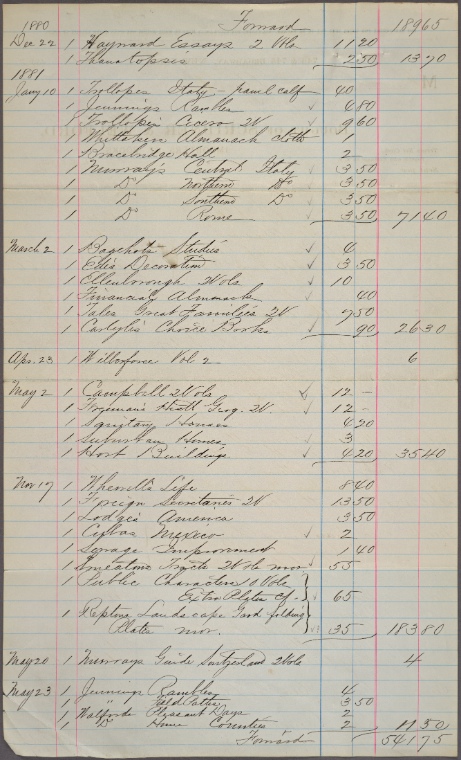 1880 Forward 18965
Dec 22 1 Hayward Essays 2 Vols 11 20
1 Thanatopsis 2 50 13 70
1881
Jany 10 1 Trollopes Italy - panel calf 40
1 Jennings Rambles 4 80
1 Trollope's Cicero 2V 9 60
1 Whittakers Almanack cloth 1
1 Bracebridge Hall 2 -
1 Murray's Centrl Italy 3 50
1 Do Northern Do 3 50
1 Do Southern Do 3 50
1 Do Rome 3 50 71 40
March 2 1 Bagehots Studies 4
1 Edis Decoration 3 50
1 Ellenborough 2 Vols 10
1 Financial Almanack 40
1 Tales Great Families 2V 7 50
1 Carlyle's Choice Books 90 26 30
Apr. 23 1 Wilberforce Vol 2 6
May 2 1 Campbell 2 Vols 12 -
1 Freeman's Histl Geog. 2V. 12 -
1 Sanitary Houses 4 20
1 Suburban Homes 3
1 Hort Buildings 4 20 35 40
Nov 17 1 Whewell's Life 8 40
1 Foreign Secretaries 2V 13 50
1 Lodge's America 3 50
1 Mexico 2
1 Sewage 1 40
1 Smeatons Tracts 2 Vols mor. 55
1 Public Characters 10 Vols
Extra Plates Cf. 65
1 Reptons Landscape Gard folding
Plates mor. 35 183 80
May 20 1 Murrays Guide Switzerland 2 Vols 4
May 23 1 Jennings Rambles 4
1 " Field Paths 3 50
1 Walfords Pleasant Days 2
1 Do Home Counties 2 11 50
Forward 541 75